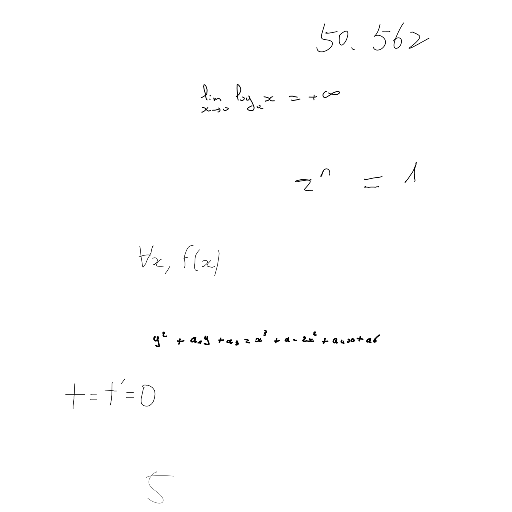 50.562
lim x→0 log_a x = +∞
z^n = 1
∀x, f(x)
y^2 + a_1 y + a_3 = x^3 + a - 2x^2 + a_4 x + a6
t = t' = 0
5